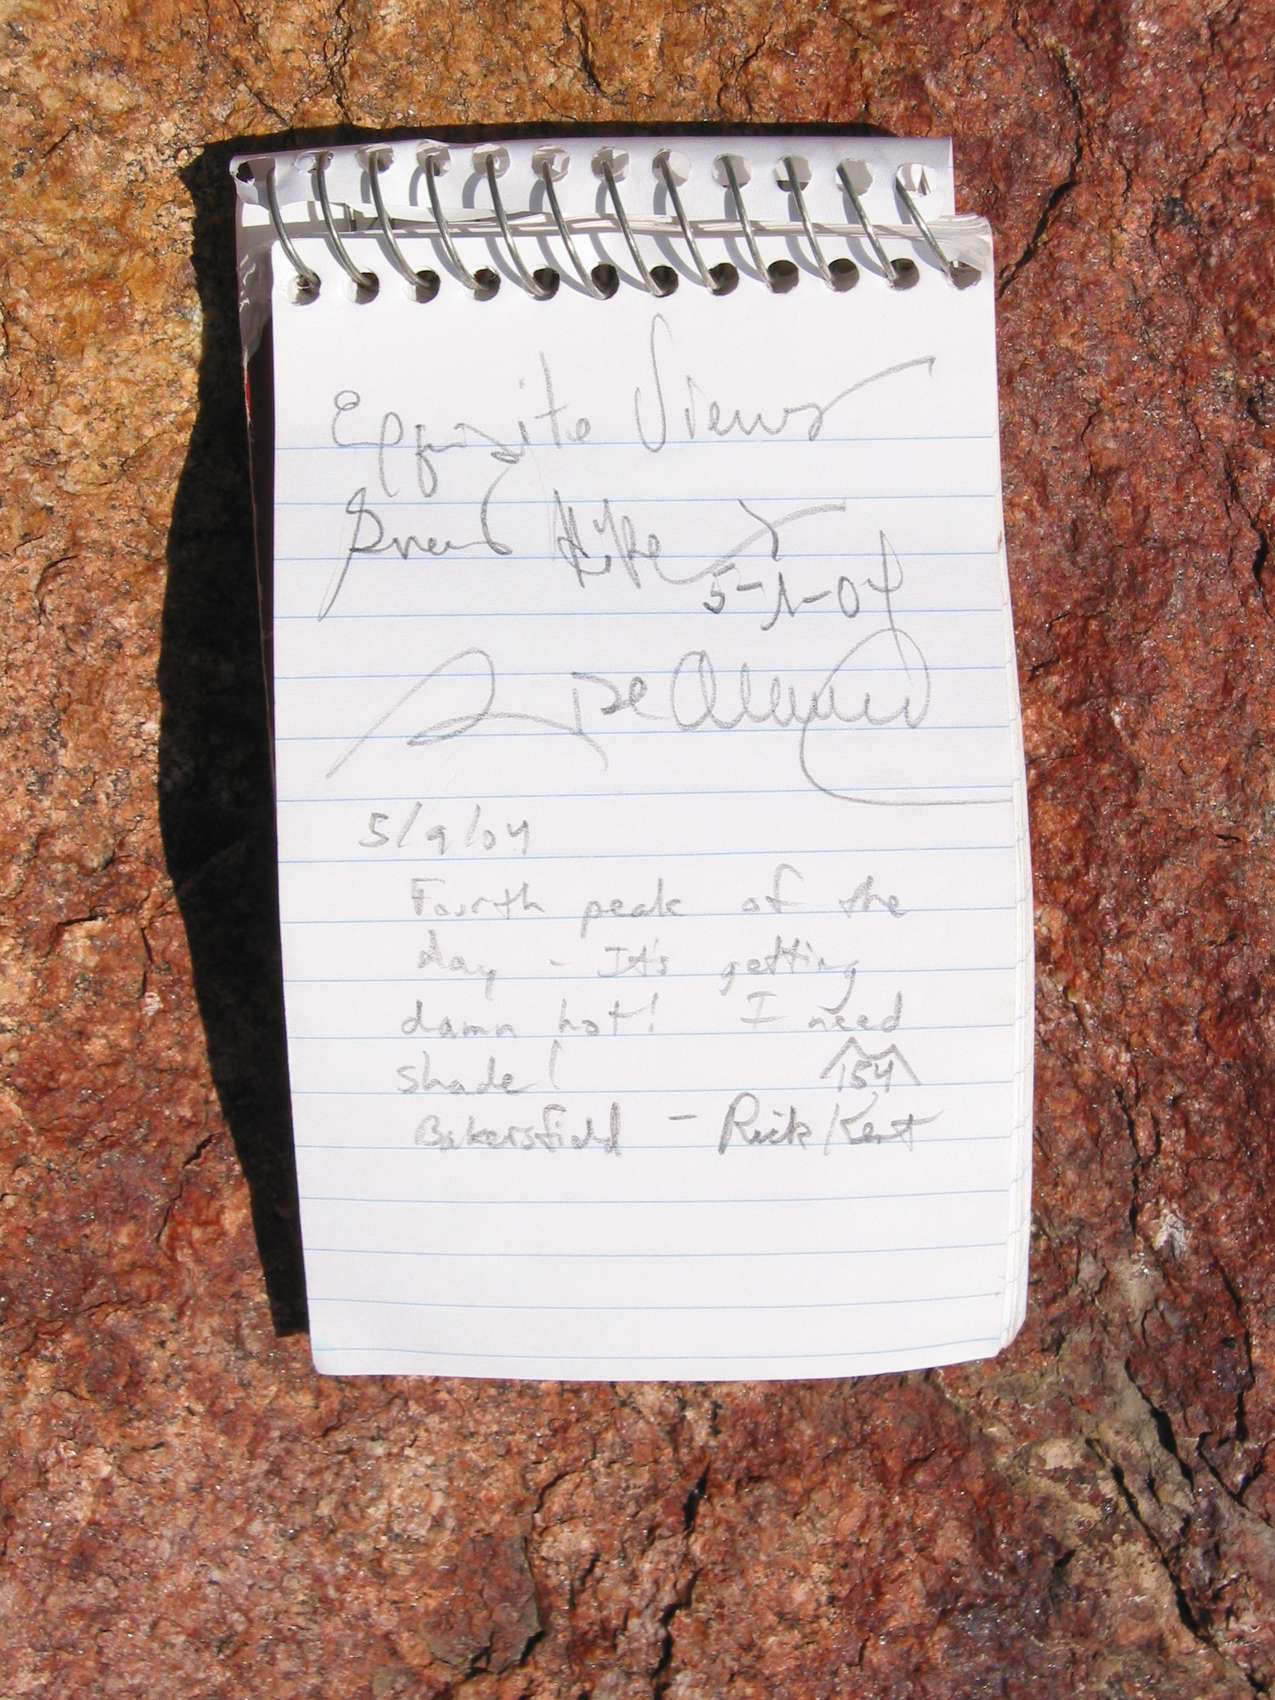 Views
Hike
5-1-04
5/9/04
Fourth peak of the
day - It's getting
damn hot! I need
shade! 154
Bakersfield - Rick Kent